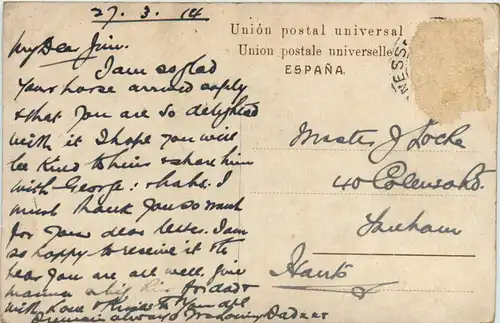 27. 3. 14
My Dear Jim.
I am so glad
Your horse arrived safely
& that you are so delighted
with it I hope you will
be kind to him & share him
with George: & Babs. I
must thank you so much
for your dear letter. I am
so happy to receive it & to
hear you are all well. Give
mamma a big kiss for dad &
with love & kisses to you all
I remain always Yr loving Dad
Unión postal universal
Union postale universelle
ESPAÑA.
Master J Locke
40 Colenso Rd.
Fareham
Hants